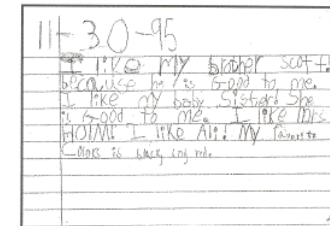 11-30-95
I like My brother scott.
because he is Good to me.
I like My baby Sister! She
is Good to me. I like Mrs.
HOlM! I like Ali! My favorite
Colors is black and red.